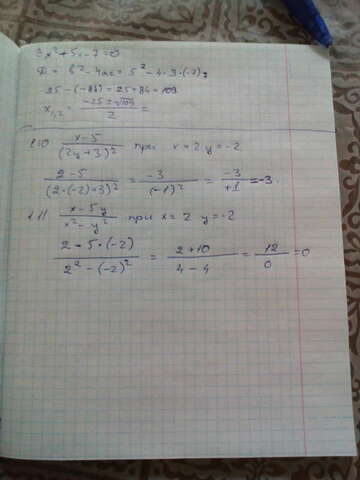 3x² + 5x - 7 = 0
D = b² - 4ac = 5² - 4·3·(-7) =
25 - (-84) = 25 + 84 = 109
x₁,₂ = (-25 ± √109)/2 =
(x-5)/(2y+3)² при x = 2 y = -2
(2-5)/(2·(-2)+3)² = -3/(-1)² = -3/+1 = -3.
(x-5y)/(x²-y²) при x = 2 y = -2
(2-5·(-2))/(2²-(-2)²) = (2+10)/(4-4) = 12/0 = 0